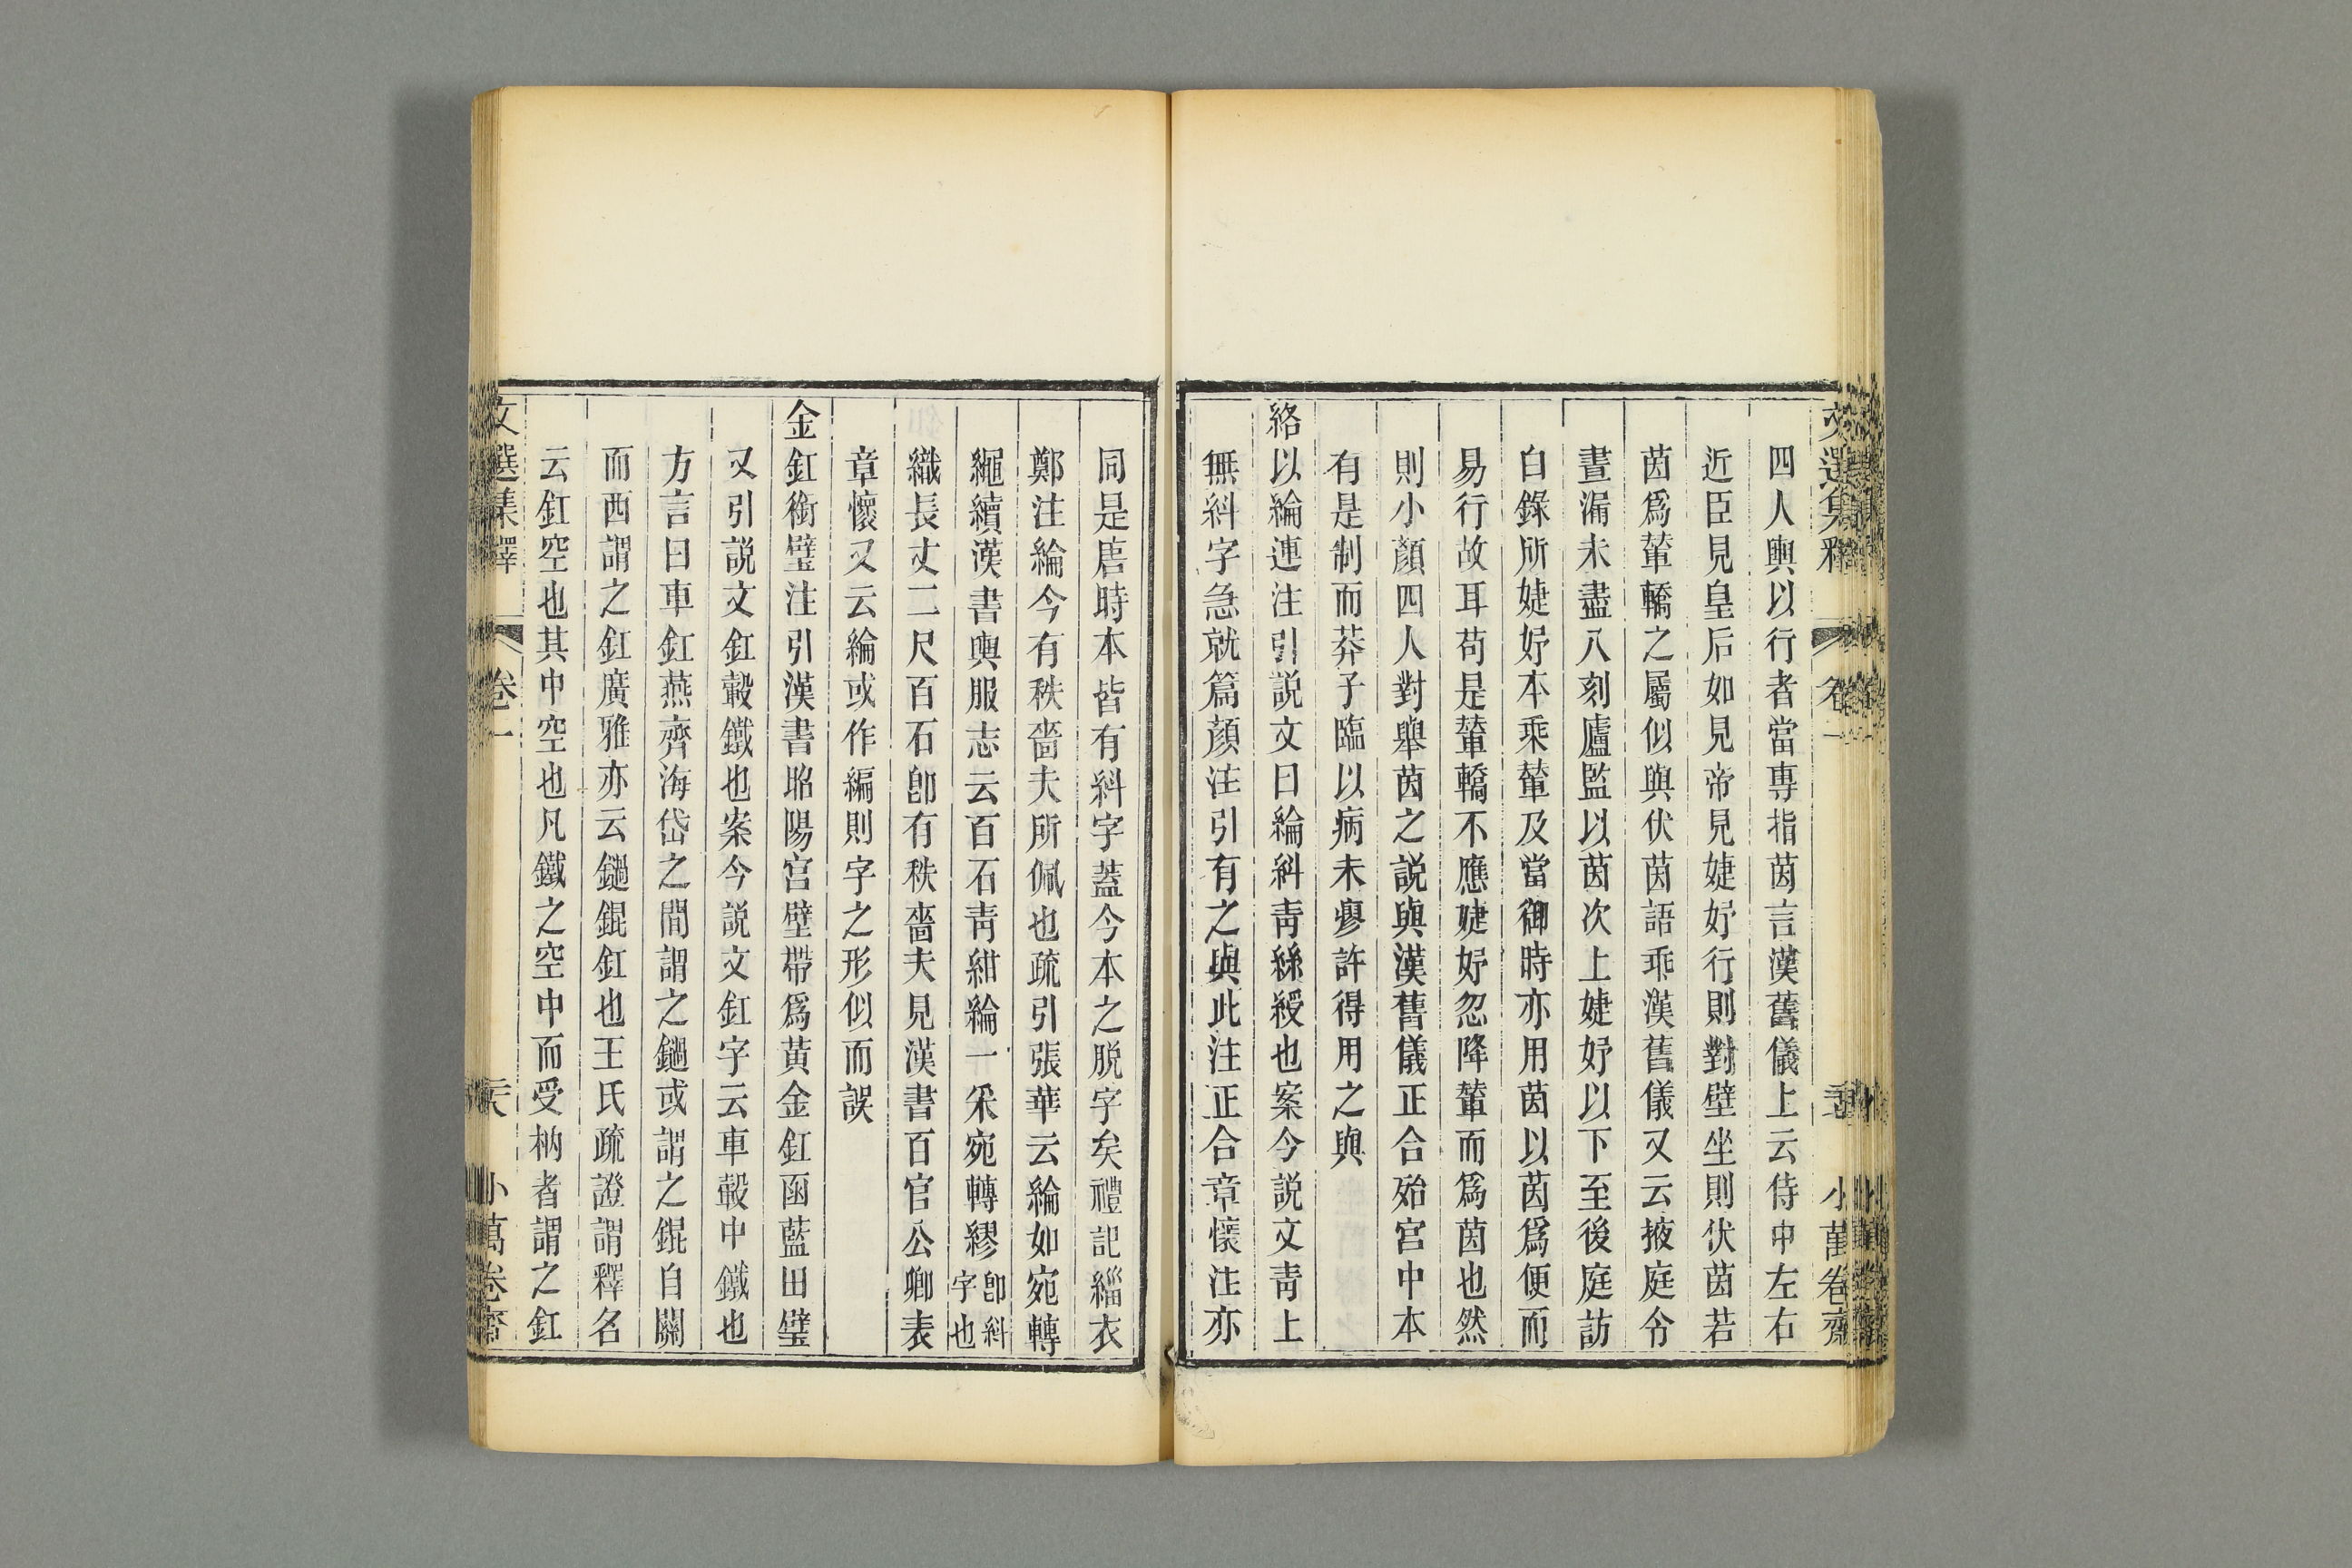 四人輿以行者當專指茵言漢舊儀上云侍中左右
近臣見皇后如見帝見婕妤行則對壁坐則伏茵若
茵爲輦轎之屬似與伏茵語乖漢舊儀又云掖庭令
晝漏未盡八刻廬監以茵次上婕妤以下至後庭訪
白錄所婕妤本乘輦及當御時亦用茵以茵爲便而
易行故耳苟是輦轎不應婕妤忽降輦而爲茵也然
則小顏四人對舉茵之説與漢舊儀正合殆宮中本
有是制而莽子臨以病未瘳許得用之與
絡以綸連注引説文曰綸糾青絲綬也案今説文青上
無糾字急就篇顏注引有之與此注正合章懷注亦
同是唐時本皆有糾字蓋今本之脱字矣禮記緇衣
鄭注綸今有秩嗇夫所佩也疏引張華云綸如宛轉
繩續漢書輿服志云百石青紺綸一采宛轉繆卽糾字也
織長丈二尺百石卽有秩嗇夫見漢書百官公卿表
章懷又云綸或作編則字之形似而誤
金釭銜璧注引漢書昭陽宮壁帶爲黃金釭函藍田璧
又引説文釭轂鐵也案今説文釭字云車轂中鐵也
方言曰車釭燕齊海岱之閒謂之鐹或謂之錕自關
而西謂之釭廣雅亦云鐹錕釭也王氏疏證謂釋名
云釭空也其中空也凡鐵之空中而受枘者謂之釭
文選集釋 卷一 天 小萬卷齋